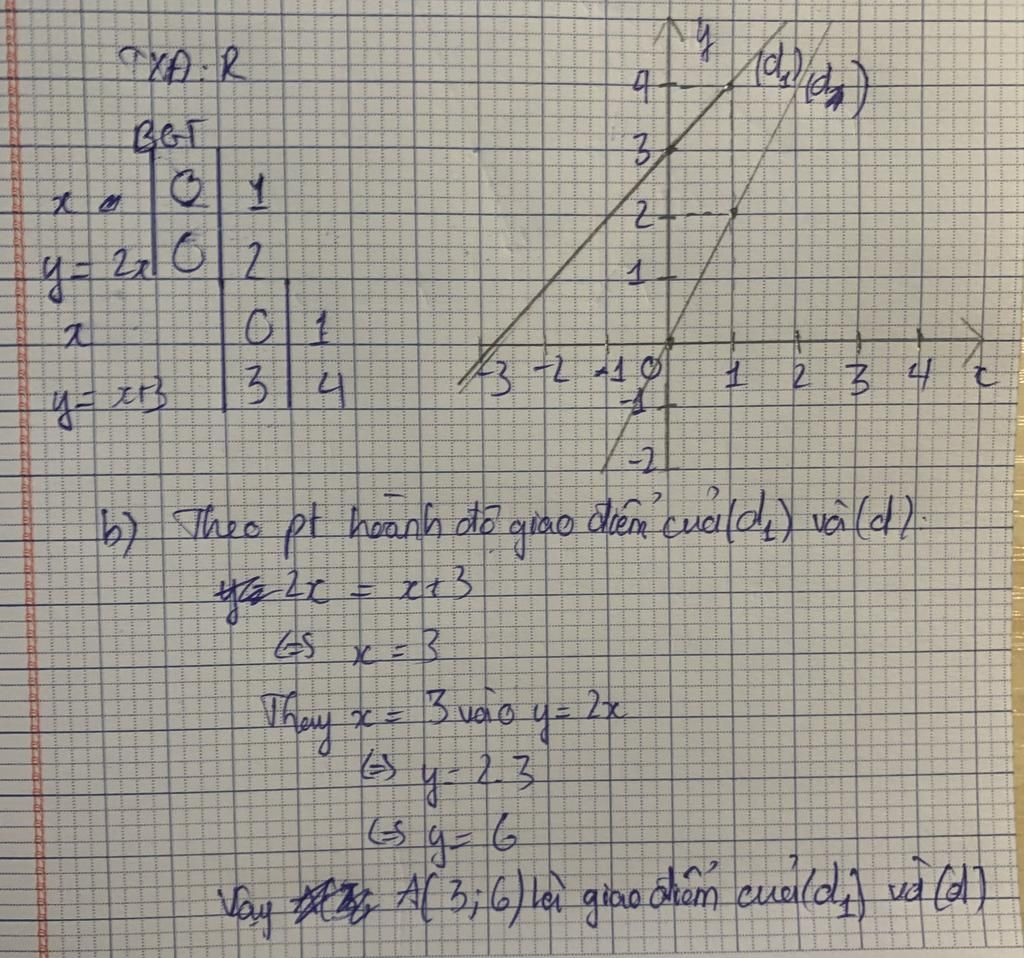 TXĐ: R
BGT
x 0 1
y = 2x 0 2
x 0 1
y = x+3 3 4
y
(d1)
4
3
2
1
-3 -2 -1 0 1 2 3 4 x
-1
-2
b) Theo pt hoành độ giao điểm của (d1) và (d).
2x = x+3
⇔ x = 3
Thay x = 3 vào y = 2x
⇔ y = 2.3
⇔ y = 6
Vậy A(3;6) là giao điểm của (d1) và (d)